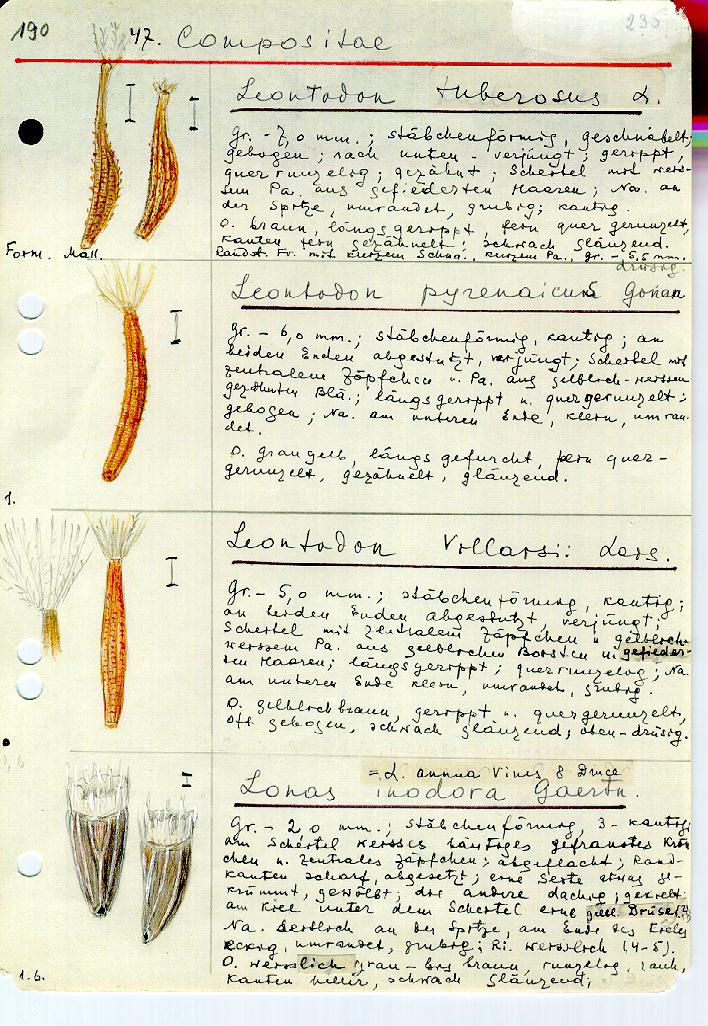 190
235
47. Compositae
Leontodon tuberosus L.
Gr. - 7,0 mm.; stäbchenförmig, geschnäbelt,
gebogen; nach unten - verjüngt; gerippt,
querrunzelig; gezähnt; Scheitel mit weis-
sem Pa. aus gefiederten Haaren; Na. an
der Spitze, umrandet, grubig; kantig.
O. braun, längsgerippt, fein quer gerunzelt,
Kanten fein gezähnelt; schwach glänzend.
Randst. Fr. mit kurzem Schna., kurzem Pa., gr. - 5,5 mm.
drüsig.
Form. Mall.
Leontodon pyrenaicus Gouan
Gr. - 6,0 mm.; stäbchenförmig, kantig; an
beiden Enden abgestutzt, verjüngt; Scheitel mit
zentralem Zäpfchen u. Pa. aus gelblich-weissen
gezähnten Blä.; längsgerippt u. quergerunzelt;
gebogen; Na. am unteren Ende, klein, umran-
det.
O. graugelb, längs gefurcht, fein quer-
gerunzelt, gezähnelt, glänzend.
1.
Leontodon Villarsii Lois.
Gr. - 5,0 mm.; stäbchenförmig, kantig;
an beiden Enden abgestutzt, verjüngt;
Scheitel mit zentralem Zäpfchen u gelblich-
weissem Pa. aus gelblichen Borsten m. gefieder-
ten Haaren; längsgerippt; querrunzelig; Na.
am unteren Ende klein, umrandet, grubig.
O. gelblichbraun, gerippt u. quergerunzelt,
oft gebogen, schwach glänzend; oben-drüsig.
= L. annua Vines & Druce
Lonas inodora Gaertn.
Gr. - 2,0 mm.; stäbchenförmig, 3-kantig;
am Scheitel weisses häutiges gefranstes Krön-
chen u. zentrales Zäpfchen; abgeflacht; Rand-
kanten scharf, abgesetzt; eine Seite etwas ge-
krümmt, gewölbt; die andere dachig; gekielt
am Kiel unter dem Scheitel eine gelb. Drüse(?).
Na. seitlich an der Spitze, am Ende des Kieles
eckig, umrandet, grubig; Ri. weisslich (4-5).
O. weisslich grau - bis braun, runzelig, rauh,
Kanten heller, schwach glänzend;
1.6.